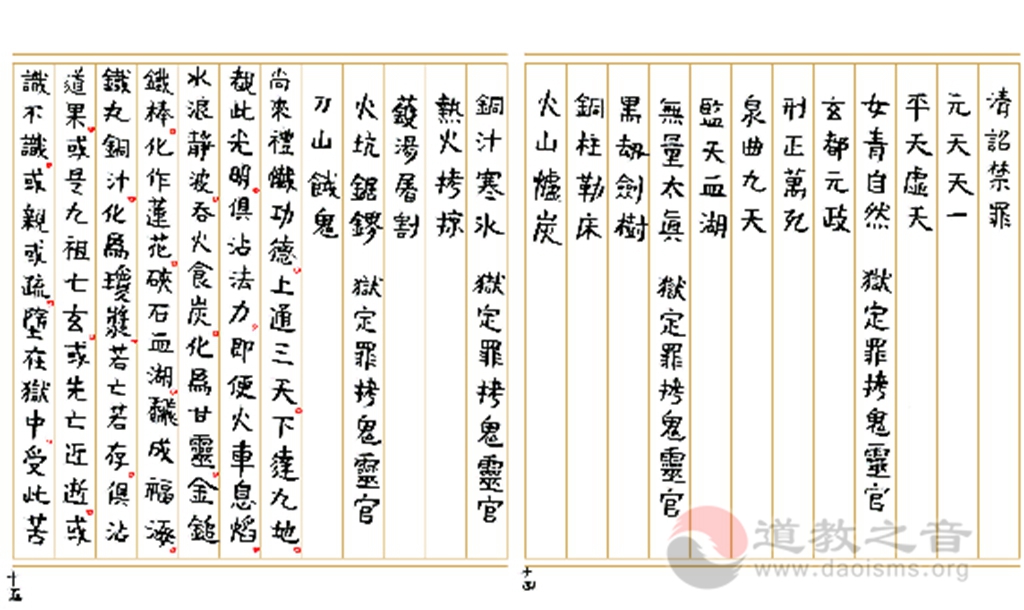 清詔禁罪
元天天一
平天虛天
女青自然 獄定罪拷鬼靈官
玄都元政
刑正萬死
泉曲九天
監天血湖
無量太真 獄定罪拷鬼靈官
黑劫劍樹
銅柱勒床
火山爐炭
十四
銅汁寒氷 獄定罪拷鬼靈官
熱火拷掠
鑊湯屠割
火坑鋸鏐 獄定罪拷鬼靈官
刀山餓鬼
尚來禮懺功德上通三天下達九地
覩此光明俱沾法力即便火車息焰
水浪靜波吞火食炭化爲甘靈金鎚
鐵棒化作蓮花硤石血湖飜成福海
鐵丸銅汁化爲瓊漿若亡若存俱沾
道果或是九祖七玄或先亡近逝或
識不識或親或疏墮在獄中受此苦
十五
道教之音
www.daoisms.org